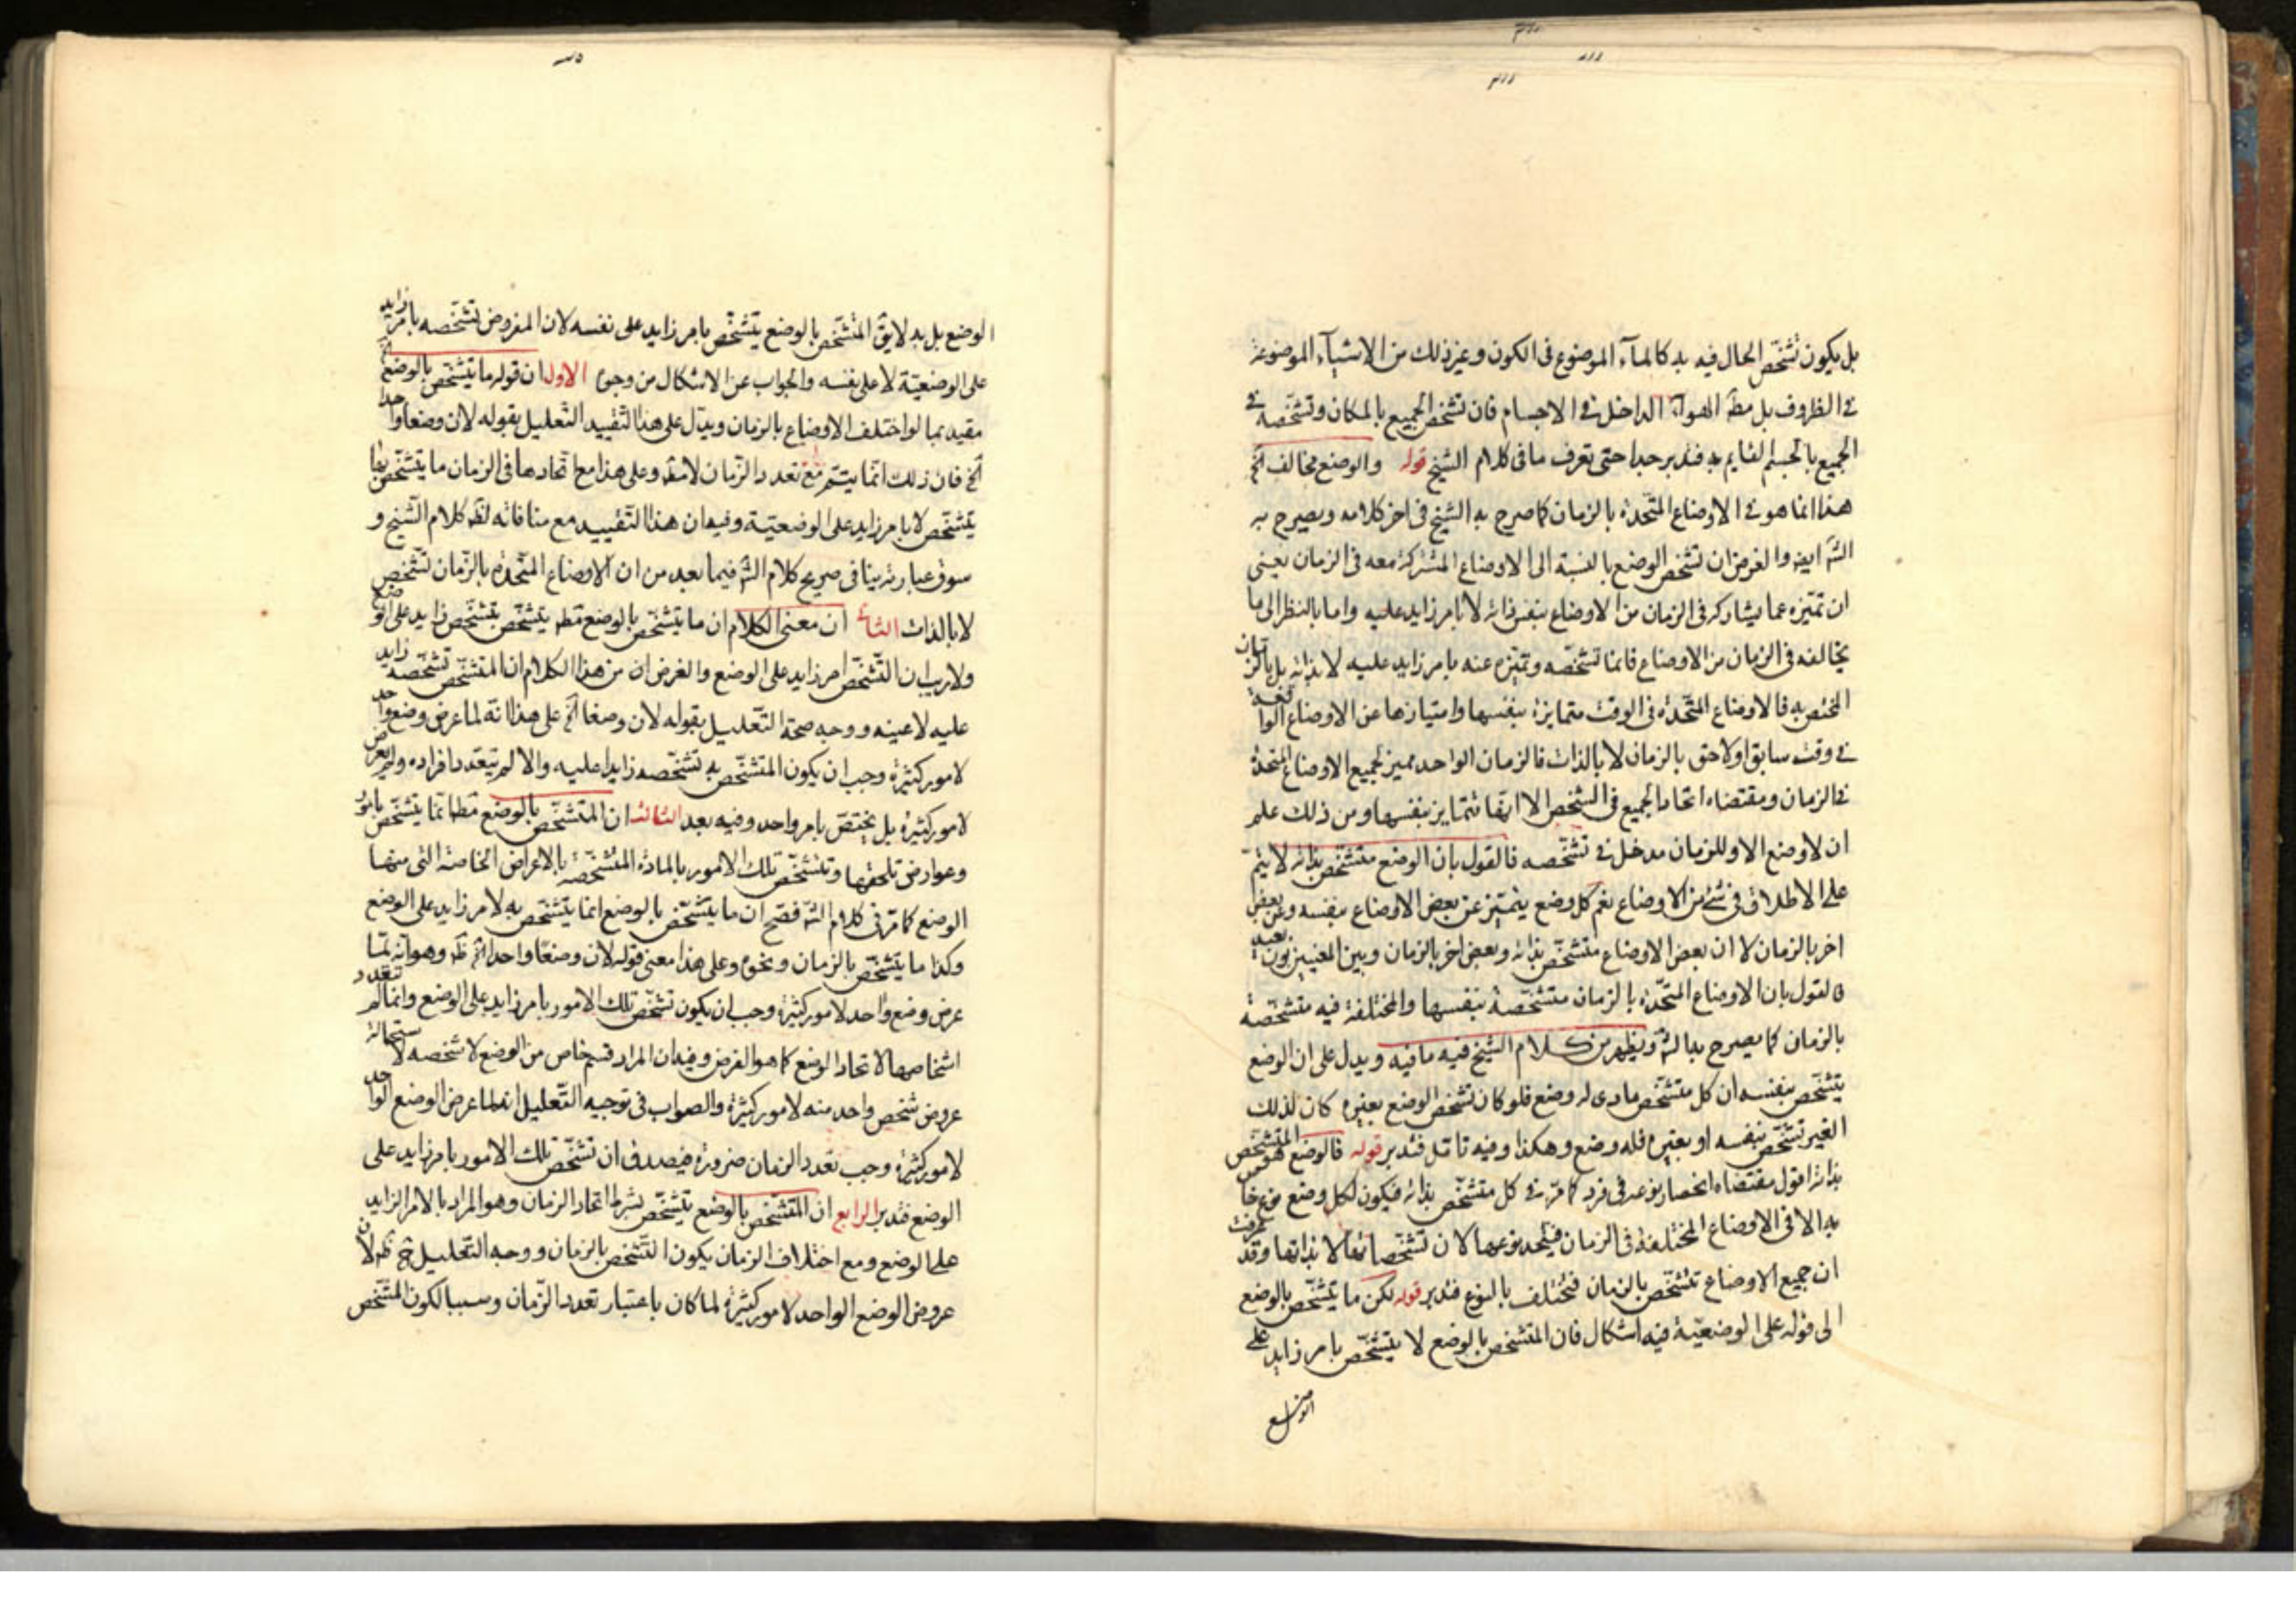 بل يكون تشخّص الحال فيه به كالمآء الموضوع فى الكون وغير ذلك من الاشيآء الموضوعة
فى الظروف بل مطـ الهوآء الداخل فى الاجسام فان تشخّص الجميع بالمكان وتشخّصه فى
الجميع بالجسم القايم به فتدبر جدا حتى تعرف ما فى كلام الشيخ قوله والوضع مخالف الخ
هذا انما هو فى الاوضاع المتّحدة بالزمان كما صرح به الشيخ فى اخر كلامه ويصرح به
الشّه ايضه والغرض ان تشخّص الوضع بالنسبة الى الاوضاع المشتركة معه فى الزمان يعنى
ان تميّزه عما يشاركه فى الزمان من الاوضاع بنفس ذاته لا بامر زايد عليه واما بالنظر الى ما
يخالفه فى الزمان من الاوضاع فانما تشخّصه وتميّزه عنه بامر زايد عليه لا بذاته بل بالزمان
المختص به فالاوضاع المتّحدة فى الوقت متمايزة بنفسها وامتيازها عن الاوضاع الواقعة
فى وقت سابق او لاحق بالزمان لا بالذات فالزمان الواحد مميز لجميع الاوضاع المتحدة
فى الزمان ومقتضاه اتحاد الجميع فى الشخص الا انها تتمايز بنفسها ومن ذلك علم
ان لا وضع الا وللزمان مدخل فى تشخّصه فالقول بان الوضع متشخّص بذاته لا يتمّ
على الاطلاق فى شئ من الاوضاع نعم كل وضع يتميّز عن بعض الاوضاع بنفسه وعن بعض
اخر بالزمان لا ان بعض الاوضاع متشخّص بذاته وبعض اخر بالزمان وبين المعنيين بون بعيد
فالقول بان الاوضاع المتّحدة بالزمان متشخّصة بنفسها والمختلفة فيه متشخّصة
بالزمان كما يصرح به الشّه ويظهر من كلام الشيخ فيه ما فيه ويدل على ان الوضع
يتشخّص بنفسه ان كل متشخّص مادى له وضع فلو كان تشخّص الوضع بغيره كان لذلك
الغير تشخّص بنفسه او بغيره فله وضع وهكذا وفيه تامّل فتدبر قوله فالوضع هو المتشخّص
بذاته اقول مقتضاه انحصار نوعه فى فرد كما مرّ فى كل متشخّص بذاته فيكون لكل وضع نوع خاص
به الا فى الاوضاع المختلفة فى الزمان فيتّحد نوعها لان تشخّصاتها لا بذاتها وقد عرفت
ان جميع الاوضاع تتشخّص بالزمان فتختلف بالنوع فتدبر قوله لكن ما يتشخّص بالوضع
الى قوله على الوضعيّة فيه اشكال فان المتشخّص بالوضع لا يتشخّص بامر زايد على
الوضع بل به لا يقـ المتشخّص بالوضع يتشخّص بامر زايد على نفسه لان المفروض تشخّصه بامر زايد
على الوضعيّة لا على نفسه والجواب عن الاشكال من وجوه الاول ان قوله ما يتشخّص بالوضع الخ
مقيد بما لو اختلف الاوضاع بالزمان ويدل على هذا التقييد التّعليل بقوله لان وضعا واحدا
الخ فان ذلك انّما يتمّ مع تعدد الزّمان لا مطـ وعلى هذا مع اتّحادها فى الزمان ما يتشخّص بها
يتشخّص لا بامر زايد على الوضعيّة وفيه ان هذا التقييد مع منافاته لظـ كلام الشّيخ و
سوق عبارته ينافى صريح كلام الشّه فيما بعد من ان الاوضاع المتّحدة بالزّمان تشخّص
لا بالذات الثانى ان معنى الكلام ان ما يتشخّص بالوضع مطـ يتشخّص بتشخّص زايد على الوضع
ولا ريب ان التّشخّص امر زايد على الوضع والغرض ان من هذا الكلام ان المتشخّص تشخّصه زايد
عليه لا عينه ووجه صحة التّعليل بقوله لان وضعا الخ على هذا انّه لما عرض وضع واحد
لامور كثيرة وجب ان يكون المتشخّص به تشخّصه زايدا عليه والا لم يتعدد افراده ولم يعرض
لامور كثيرة بل يختصّ بامر واحد وفيه بعد الثالث ان المتشخّص بالوضع مطـ انّما يتشخّص بامور
وعوارض تلحقها وتتشخّص تلك الامور بالمادة المتشخّصة بالاعراض الخاصة التى منها
الوضع كما مرّ فى كلام الشّه فصحّ ان ما يتشخّص بالوضع انما يتشخّص به لامر زايد على الوضع
وكذا ما يتشخّص بالزمان ونحوه وعلى هذا معنى قوله لان وضعًا واحدا الخ ظـ وهو انه لمّا
عرض وضع واحد لامور كثيرة وجب ان يكون تشخّص تلك الامور بامر زايد على الوضع وانما لم تتعدد
اشخاصها لاتحاد الوضع كما هو الفرض وفيه ان المراد قسم خاص من الوضع لا شخصه لاستحالة
عروض شخص واحد منه لامور كثيرة والصواب فى توجيه التّعليل انه لما عرض الوضع الواحد
لامور كثيرة وجب تعدد الزمان ضرورة فيصدق ان تشخّص تلك الامور بامر زايد على
الوضع فتدبر الرابع ان المتشخّص بالوضع يتشخّص بشرط اتحاد الزمان وهو المراد بالامر الزايد
على الوضع ومع اختلاف الزمان يكون التّشخص بالزمان ووجه التّعليل ح ظـ لان
عروض الوضع الواحد لامور كثيرة لما كان باعتبار تعدد الزّمان وسببا لكون المتشخّص